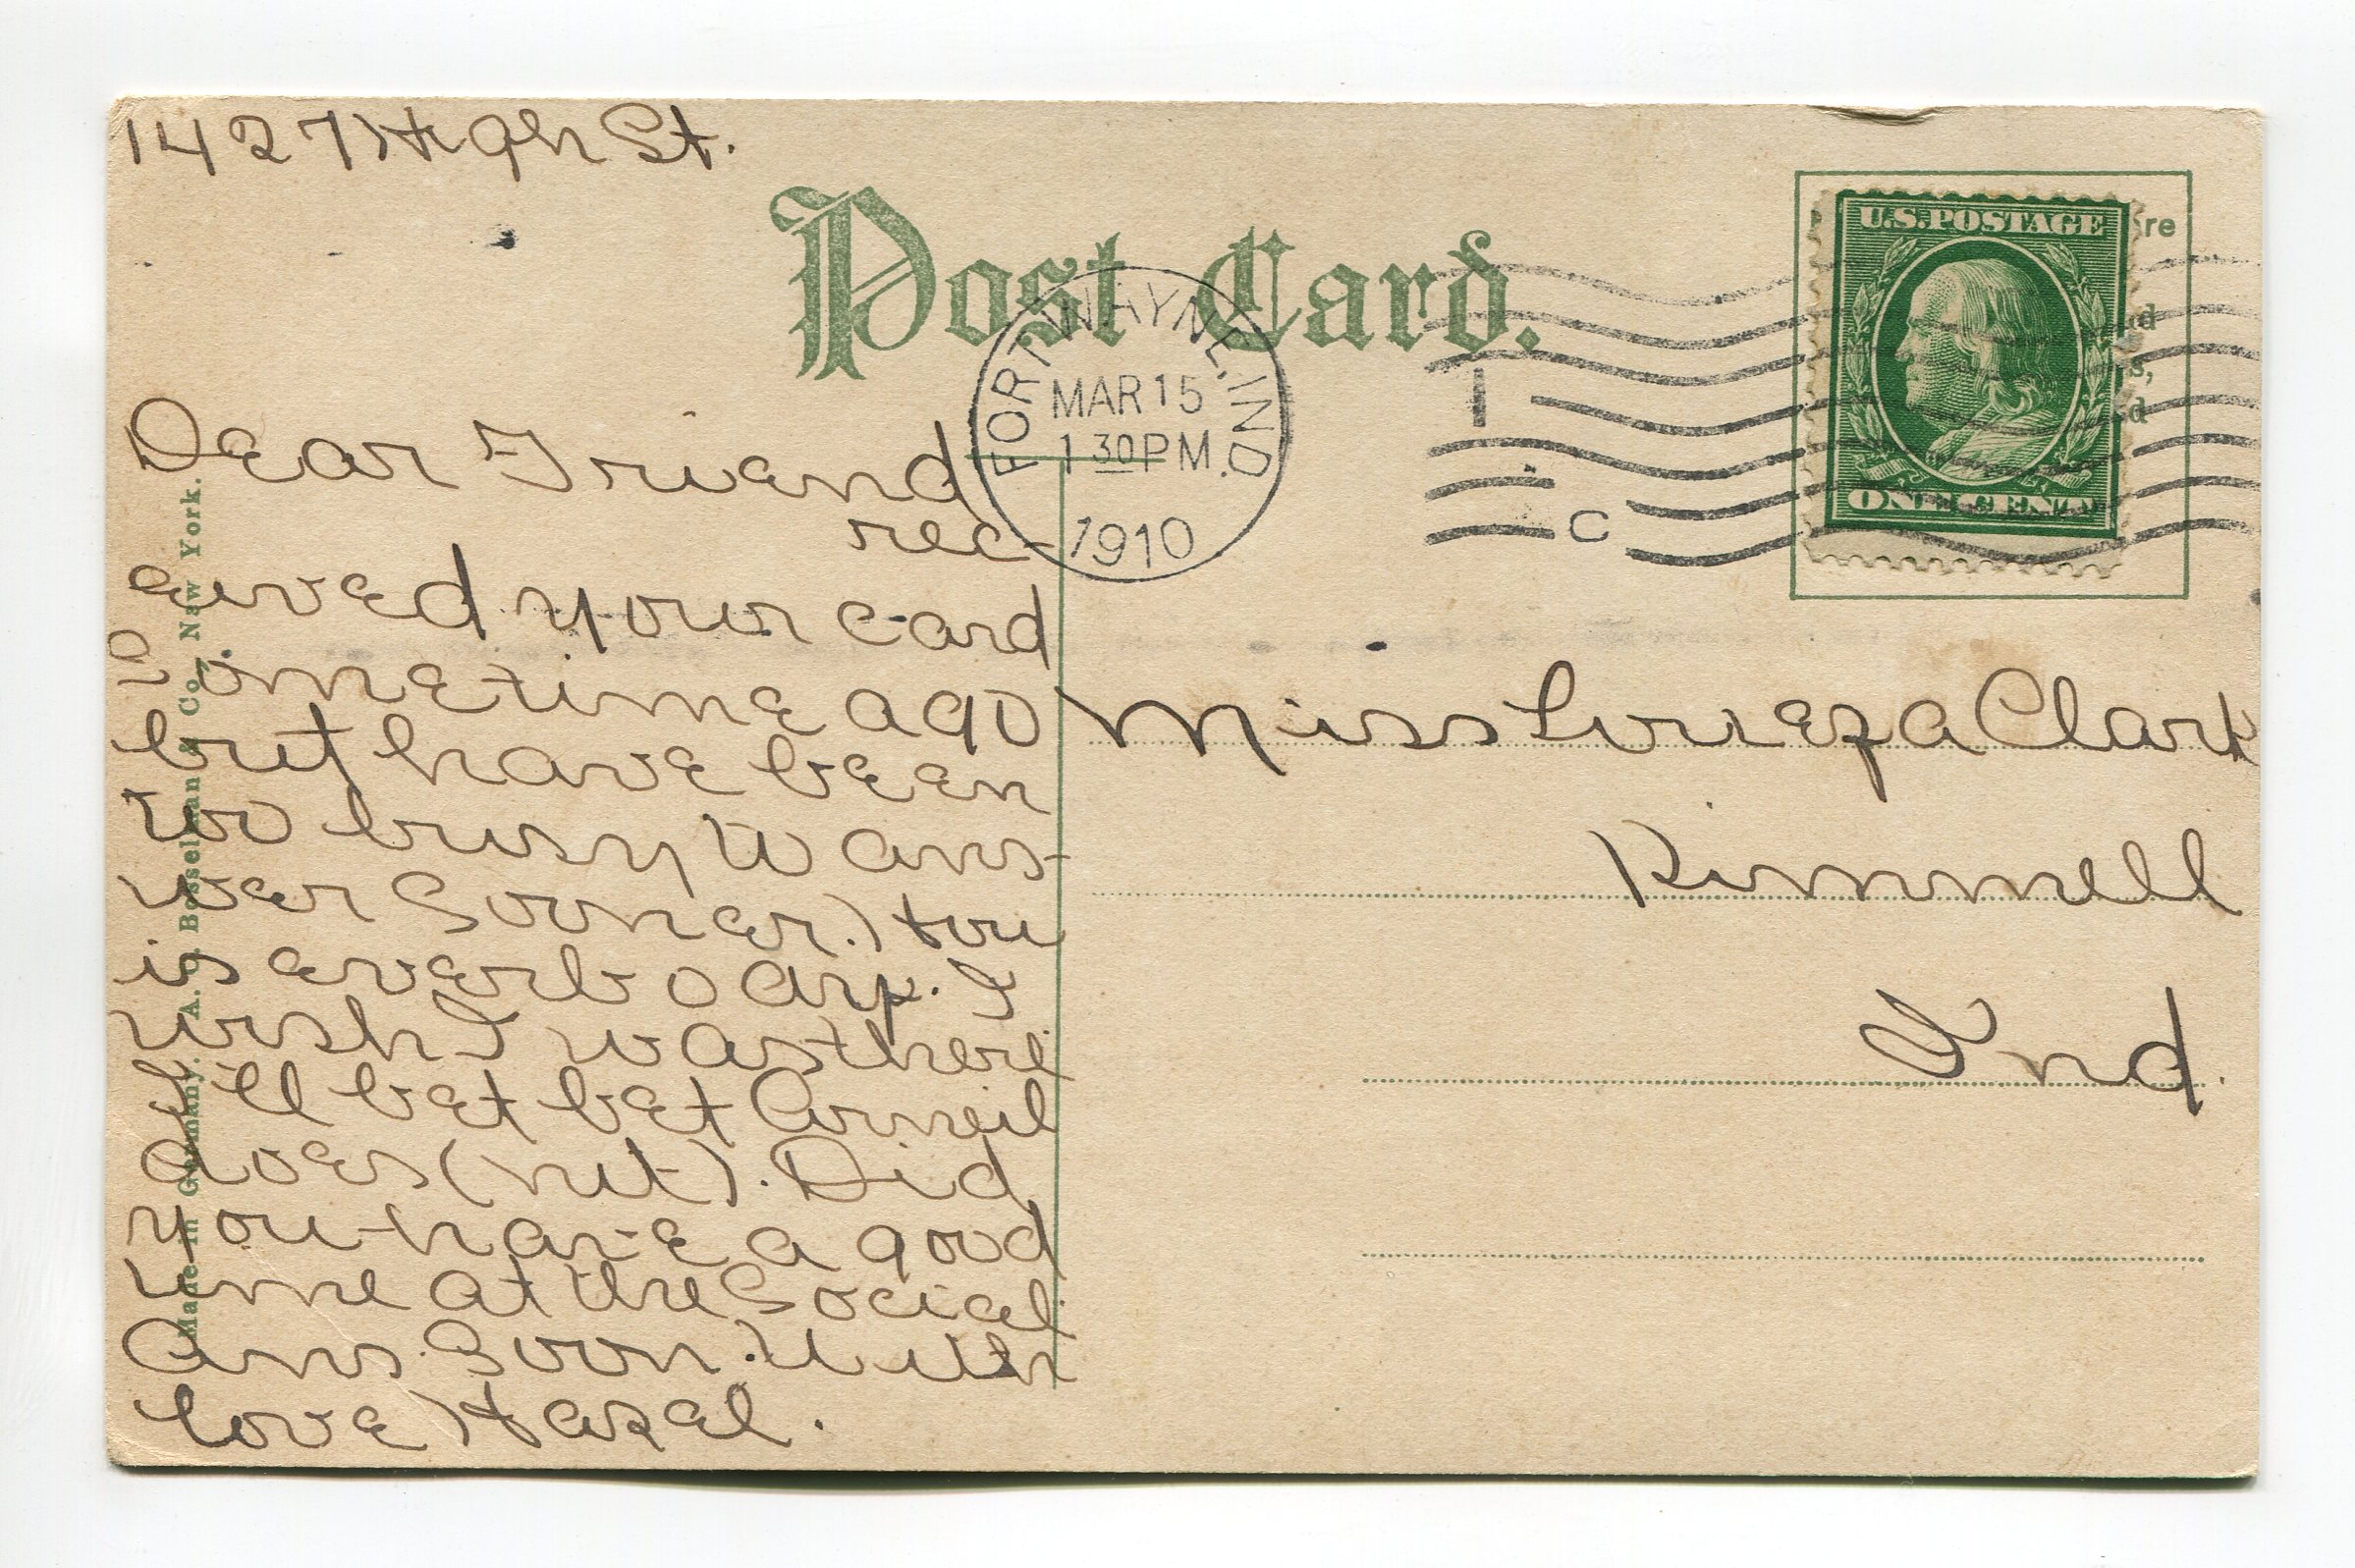 1427 High St.
Post Card.
U.S. POSTAGE
ONE CENT
re
d
s,
d
FORT WAYNE, IND.
MAR 15
1 30 PM
1910
1
C
Dear Friend
rec-
eived your card
Sometime ago
but have been
too busy to ans-
wer Sooner. How
is everbody. I
wish I was there
I'll bet bet Corneil
does (nit). Did
you have a good
time at the Social
Ans. Soon. With
love Hazel.
Miss Loueza Clark
Kimmell
Ind.
Made in Germany. A. C. Bosselman & Co., New York.